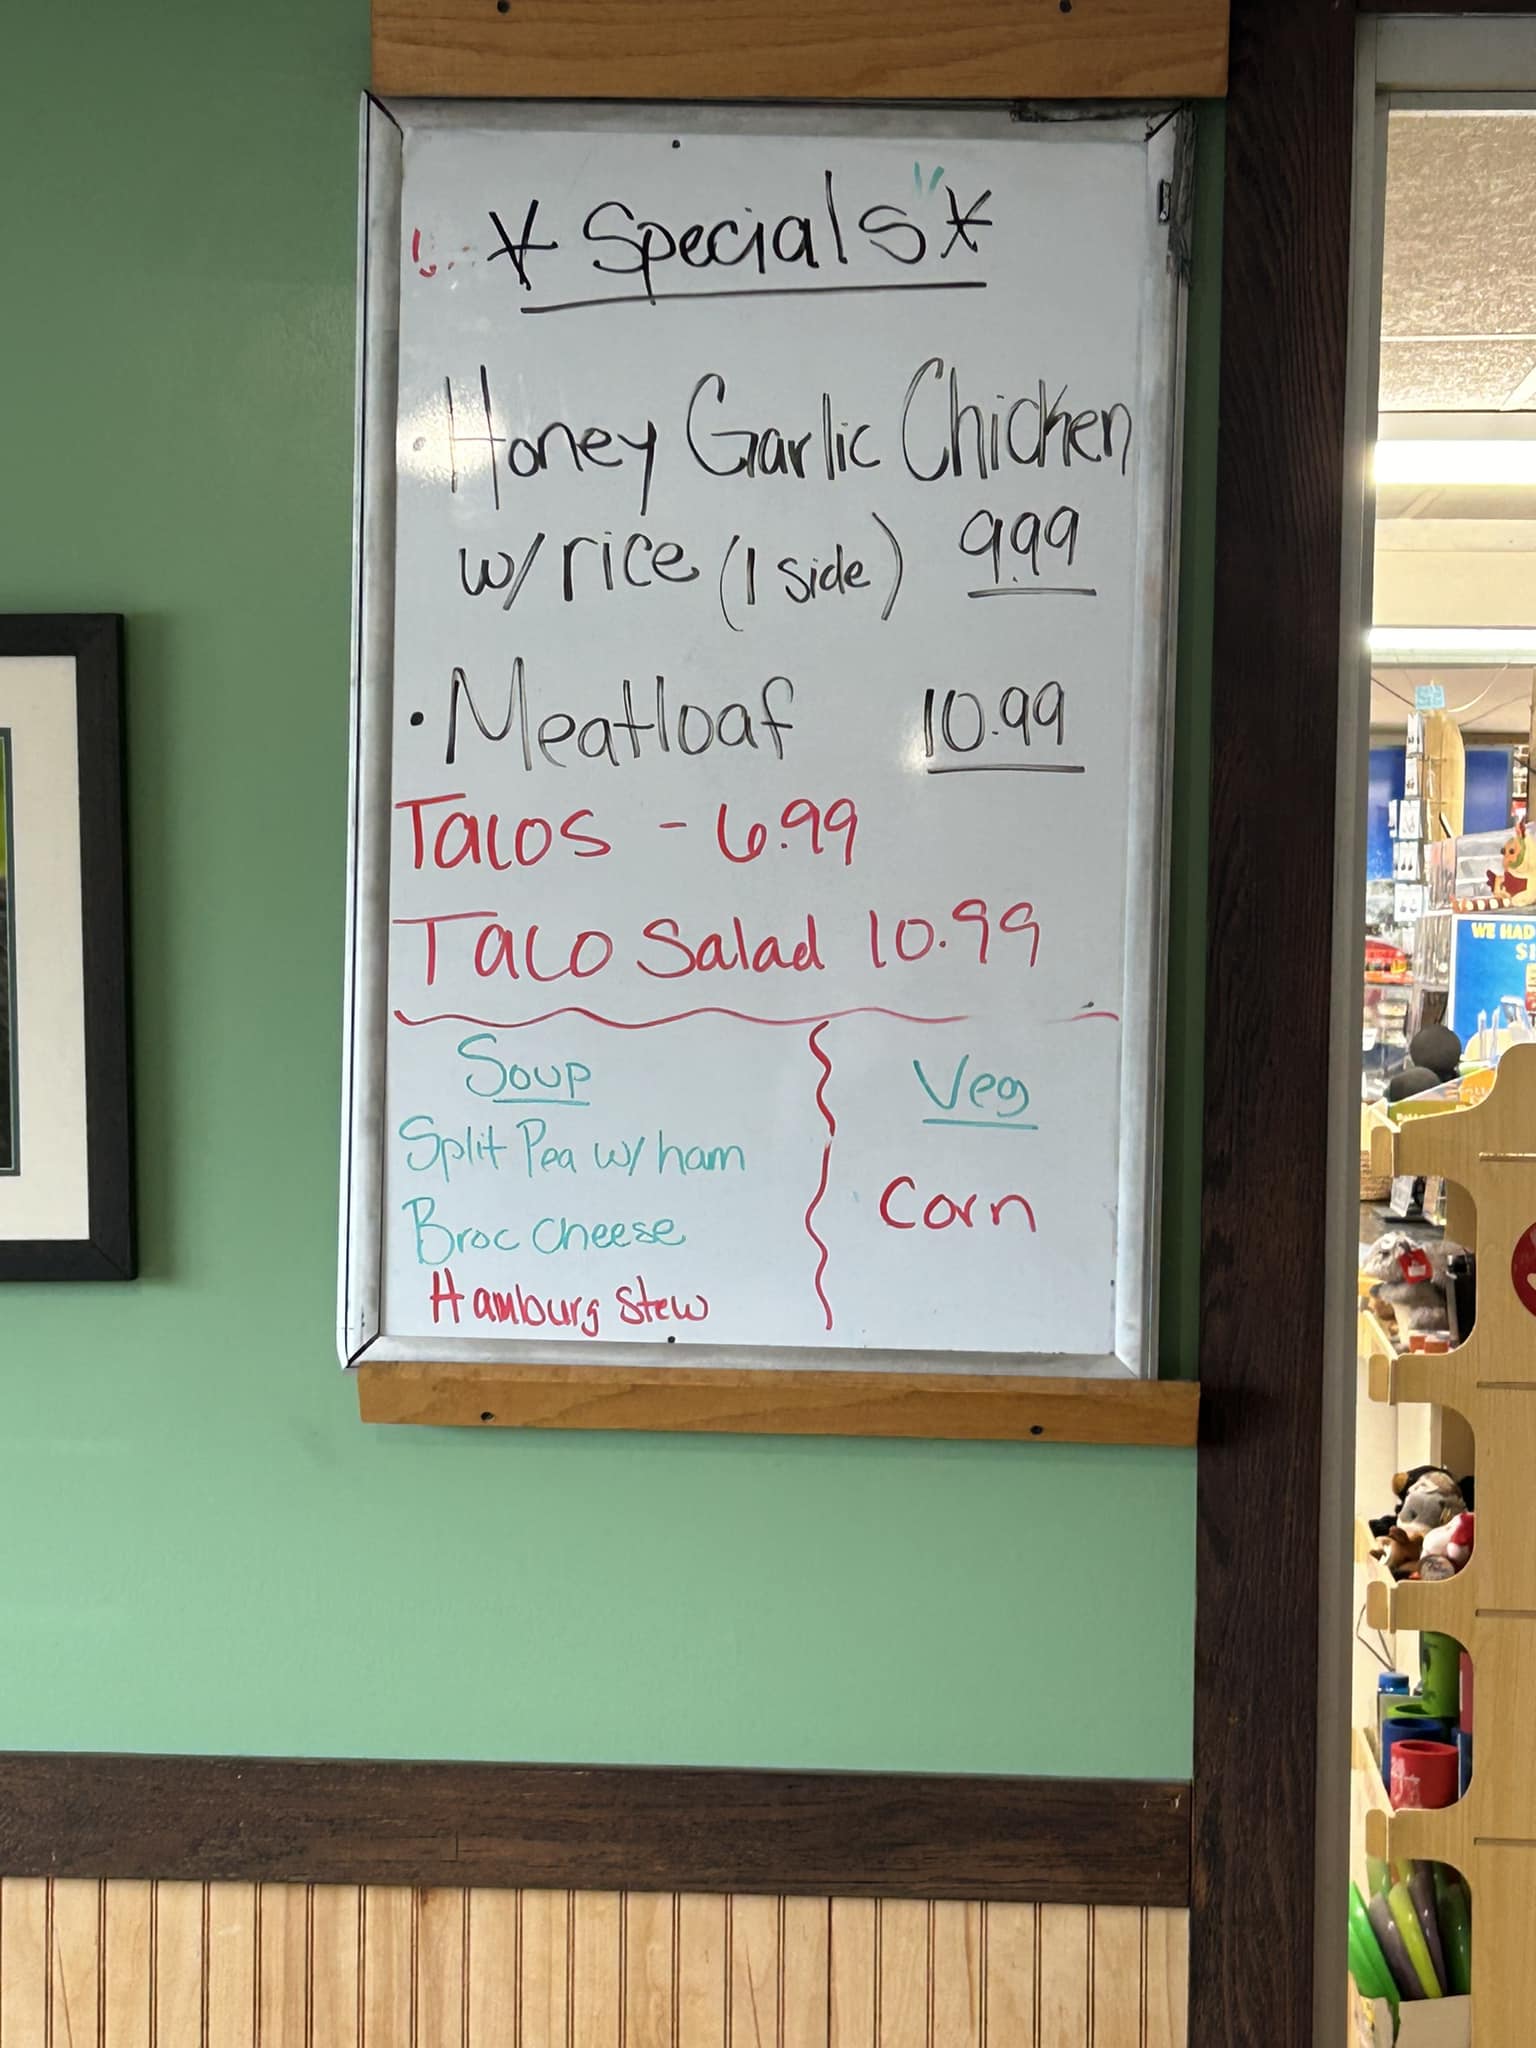 * Specials *
· Honey Garlic Chicken
w/ rice (1 side) 9.99
· Meatloaf 10.99
Tacos - 6.99
Taco Salad 10.99
Soup
Split Pea w/ ham
Broc Cheese
Hamburg Stew
Veg
Corn
WE HAD